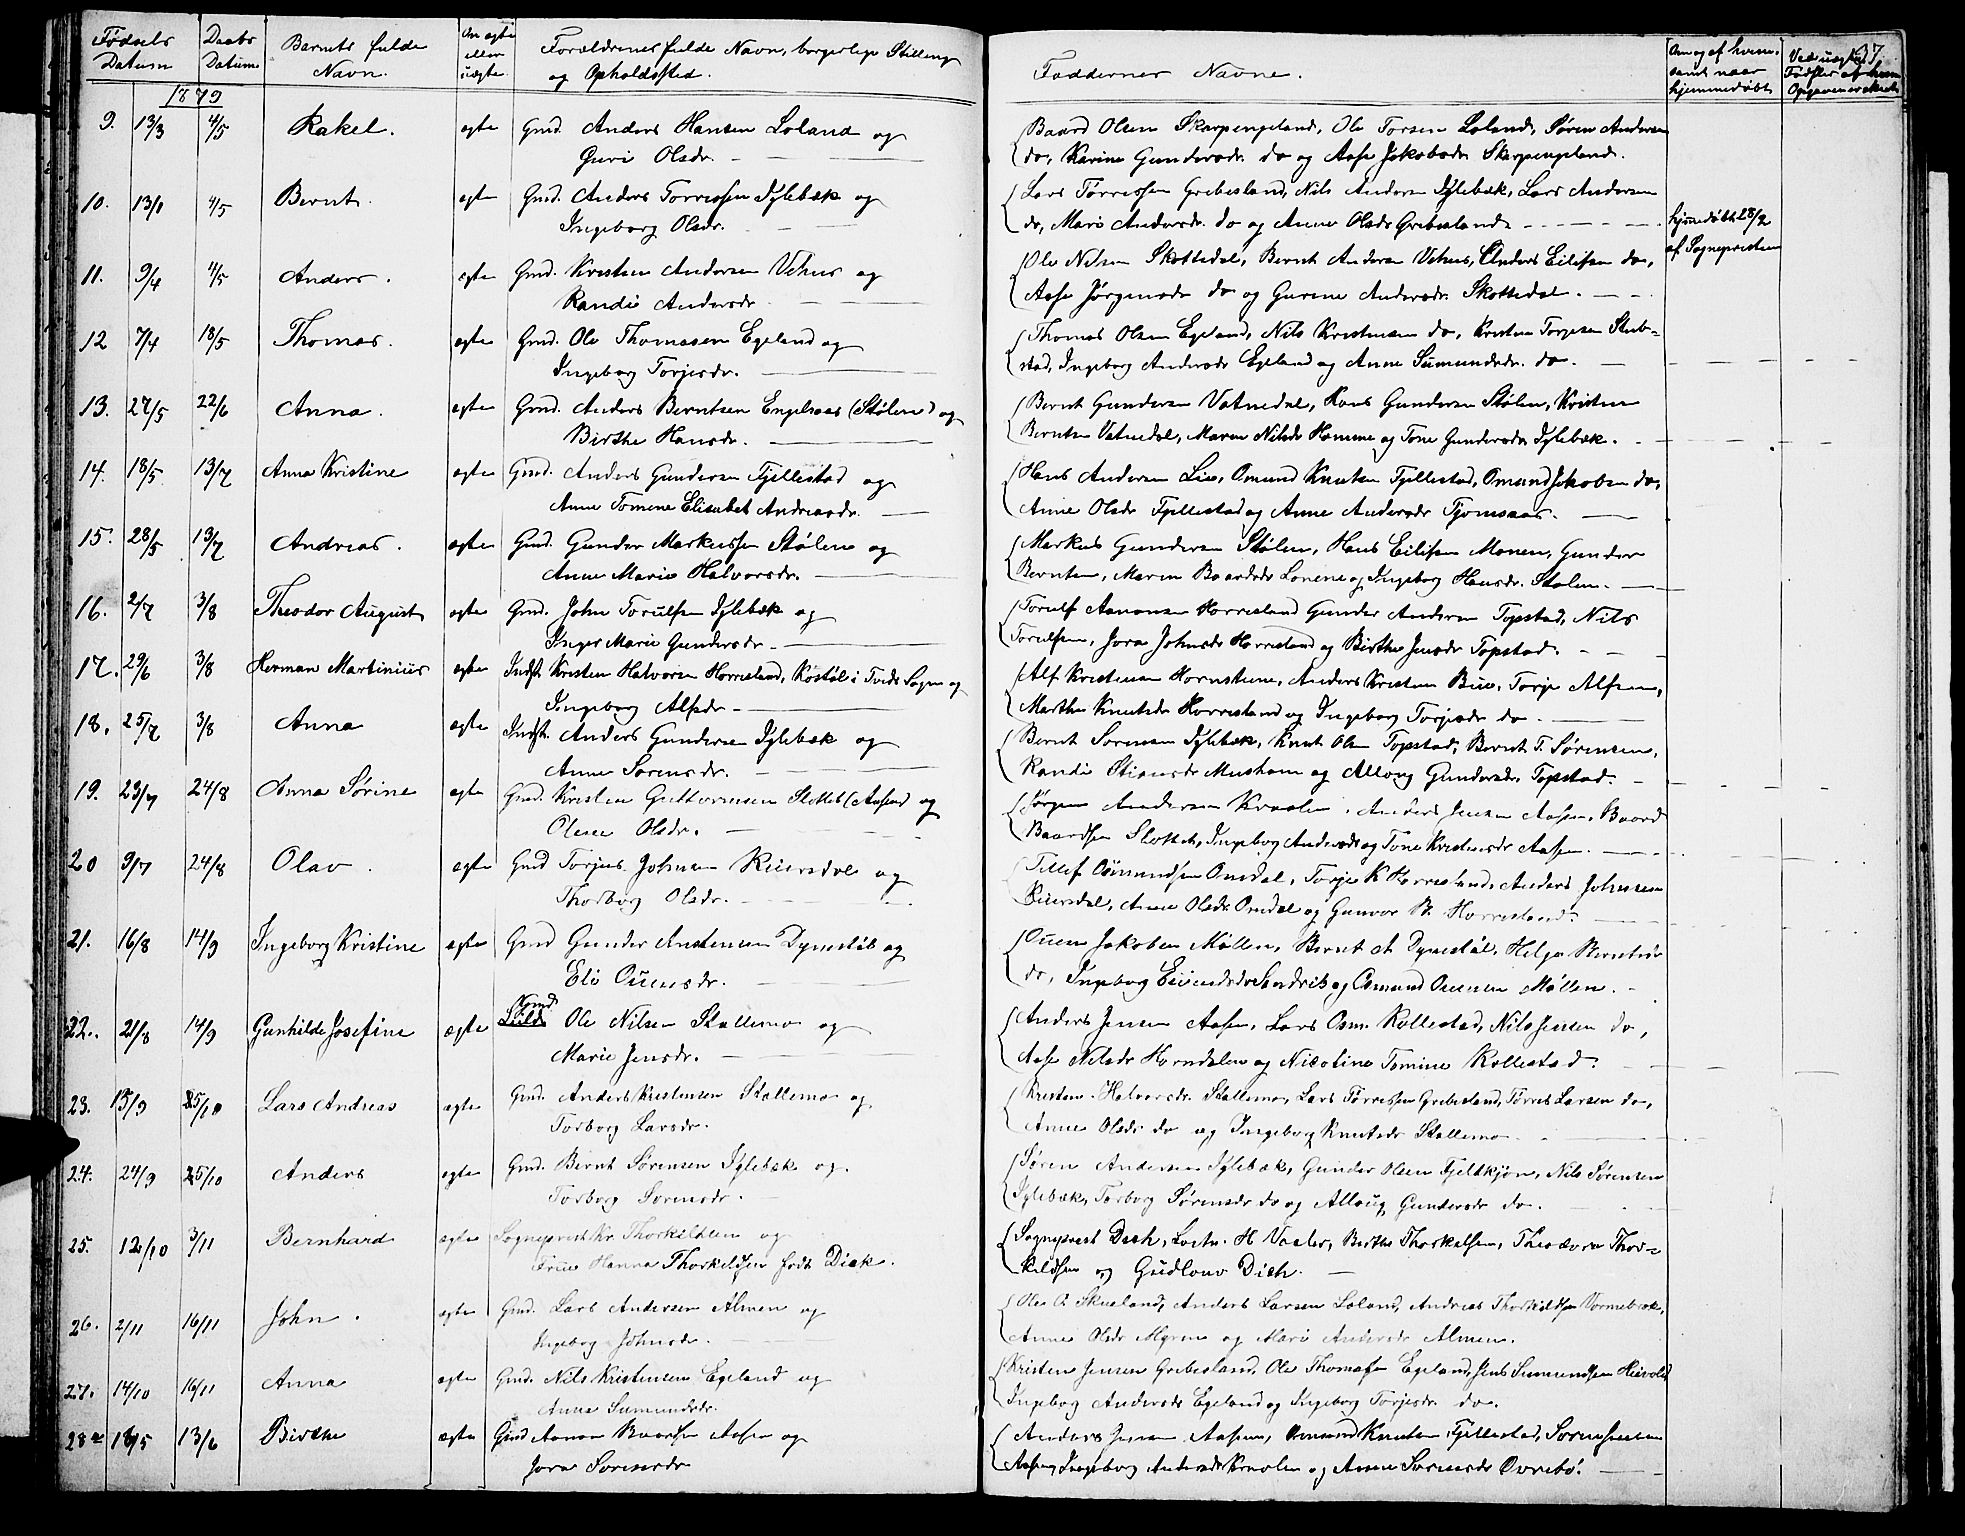 Fødsels Datum
Daabs Datum
Barnets fulde Navn.
Om ægte eller uægte.
Forældrenes fulde Navn, borgerlige Stilling og Opholdssted.
Faddernes Navne.
Om og af hvem, samt naar hjemmedøbt
37.
1879
9. 13/3 4/5 Rakel. ægte Gmd. Anders Hansen Loland og
Guri Olsdr.
Baard Olsen Skarpengeland, Ole Torsen Loland, Søren Andersen
do, Karine Gundersdr. do og Aase Jakobsdr Skarpengeland.
10. 13/1 4/5 Bernt. ægte Gmd. Anders Torressen Iglebæk og
Ingeborg Olsdr.
Lars Tørressen Grebesland, Nils Andersen Iglebæk, Lars Andersen
do, Mari Andersdr. do og Anne Olsdr Grebesland
hjemmedøbt 28/2
af Sognepresten
11. 9/4 4/5 Anders. ægte Gmd. Kristen Andersen Vehus og
Randi Andersdr
Ole Nilsen Skottedal, Bernt Andersen Vehus, Anders Eilifsen do,
Aase Jørgensdr do og Gurine Andersdr. Skottedal.
12 7/4 18/5 Thomas. ægte Gmd. Ole Thomasen Egeland og
Ingeborg Torjesdr.
Thomas Olsen Egeland, Nils Kristensen do, Kristen Torjesen Stub=
stad, Ingeborg Andersdr Egeland og Anne Sumundsdr. do.
13. 27/5 22/6 Anna. ægte Gmd. Anders Berntsen Engelsaas (Stølen) og
Birthe Hansdr.
Bernt Gundersen Vatnedal, Hans Gundersen Stølen, Kristen
Berntsen Vatnedal, Maren Nilsdr Homme og Tone Gundersdr Iglebæk.
14. 18/5 13/7 Anna Kristine ægte Gmd. Anders Gundersen Fjellestad og
Anne Tomine Elisabet Andreasdr.
Hans Andersen Lie, Omund Knutsen Fjellestad, Omund Jakobsen do,
Anne Olsdr Fjellestad og Anne Andersdr Tjomsaas.
15. 28/5 13/7 Andreas. ægte Gmd. Gunder Markussen Stølen og
Anne Marie Halvorsdr.
Markus Gundersen Stølen, Hans Eilifsen Monen, Gunder
Berntsen, Maren Baardsdr Lonene og Ingeborg Hansdr. Stølen.
16. 2/7 3/8 Theodor August ægte Gmd. John Torulfsen Iglebæk og
Inger Marie Gundersdr
Torulf Aanonsen Horrisland Gunder Andersen Topstad, Nils
Torulfsen, Jora Johnsdr Horrisland og Birthe Jensdr Topstad.
17. 29/6 3/8 Herman Martinius ægte Indst. Kristen Halvorsen Horrisland, Kostøl i Tveds Sogn og
Ingeborg Alfsdr
Alf Kristensen Hornsteine, Anders Kristensen Bue, Torje Alfsen,
Marthe Knutsdr Horrisland og Ingeborg Torjesdr do
18. 25/7 3/8 Anna ægte Indst. Anders Gundersen Iglebæk og
Anne Sørensdr.
Bernt Sørensen Iglebæk, Knut Olsen Topstad, Bernt T. Sørensen,
Randi Stiansdr Musham og Alloug Gundersdr. Topstad.
19. 23/7 24/8 Anna Sørine ægte Gmd. Kristen Guttormsen Slottet (Aasen) og
Olene Olsdr.
Jørgen Andersen Kraalen, Anders Jensen Aasen, Baard
Baardsen Slottet, Ingeborg Andersdr og Tone Kristensdr Aasen.
20 9/7 24/8 Olav. ægte Gmd Torjus Johnsen Reiersdal og
Thorborg Olsdr.
Tellef Osmundsen Omdal, Torje K Horrisland, Anders Johnsen
Reiersdal, Anne Olsdr Omdal og Gunvor B. Horrisland.
21. 16/8 14/9 Ingeborg Kristine ægte Gmd Gunder Anstensen Dynestøl og
Eli Ouensdr.
Ouen Jakobsen Møllen, Bernt A Dynestøl, Helga Berntsdr
do, Ingeborg Eivindsdr Sandrik og Osmund Ouensen Møllen.
22. 21/8 14/9 Gunhilde Josefine ægte Ole Nilsen Stallemo og
Marie Jensdr.
Anders Jensen Aasen, Lars Osm. Kollestad, Nils Jensen do,
Aase Nilsdr Horndalen og Nicoline Tomine Kollestad.
23. 13/9 25/10 Lars Andreas ægte Gmd. Anders Kristensen Stallemo og
Torborg Larsdr.
Kristen Halvorsdr. Stallemo, Lars Tørressen Grebesland, Tørres Larsen do,
Anne Olsdr do og Ingeborg Knutsdr Stallemo
24. 24/9 25/10 Anders ægte Gmd. Bernt Sørensen Iglebæk og
Torborg Sørensdr.
Søren Andersen Iglebæk, Gunder Olsen Fjeldkjøn, Nils Sørensen
Iglebæk, Torborg Sørensdr do og Alloug Gundersdr do.
25. 12/10 3/11 Bernhard ægte Sogneprest Kr. Thorkildsen og
Frue Hanna Thorkeldsen født Dick.
Sogneprest Dick, H Vaaler, Birthe Thorkelsen, Theodora Thor=
keldsen og Gudlove Dick.
26. 2/11 16/11 John. ægte Gmd. Lars Andersen Almen og
Ingeborg Johnsdr.
Ole O Skueland, Anders Larsen Loland, Andreas Thorkildsen Vormebæk,
Anne Olsdr Myren og Mari Andersdr Almen.
27. 14/10 16/11 Anna ægte Gmd. Nils Kristensen Egeland og
Anne Sumundsdr.
Kristen Jensen Grebesland, Ole Thomassen Egeland, Jens Sumundsen Heivold
Ingeborg Andersdr Egeland og Ingeborg Torjesdr do.
28 18/5 13/6 Birthe ægte Gmd Aanon Baardsen Aasen og
Jora Sørensdr
Anders Jensen Aasen, Omund Knutsen Fjellestad, Søren Jensen
Aasen, Ingeborg Andersdr Kraalen og Anne Sørensdr Øvrebø.